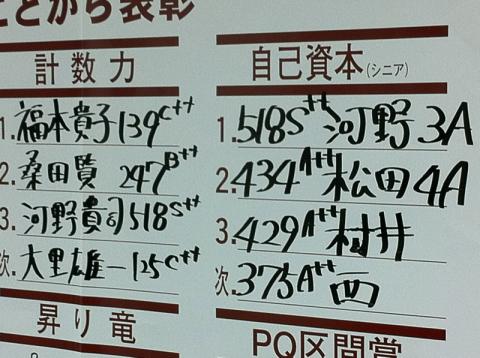 ことがら表彰
計数力
1. 福本貴子 139 C++
2. 桑田賢 247 B++
3. 河野貴司 518 S++
次. 大里雄一 125 C++
昇り竜
自己資本(シニア)
1. 518 S++ 河野 3A
2. 434 A++ 松田 4A
3. 429 A++ 村井
次. 375 A++ 西
PQ区間賞